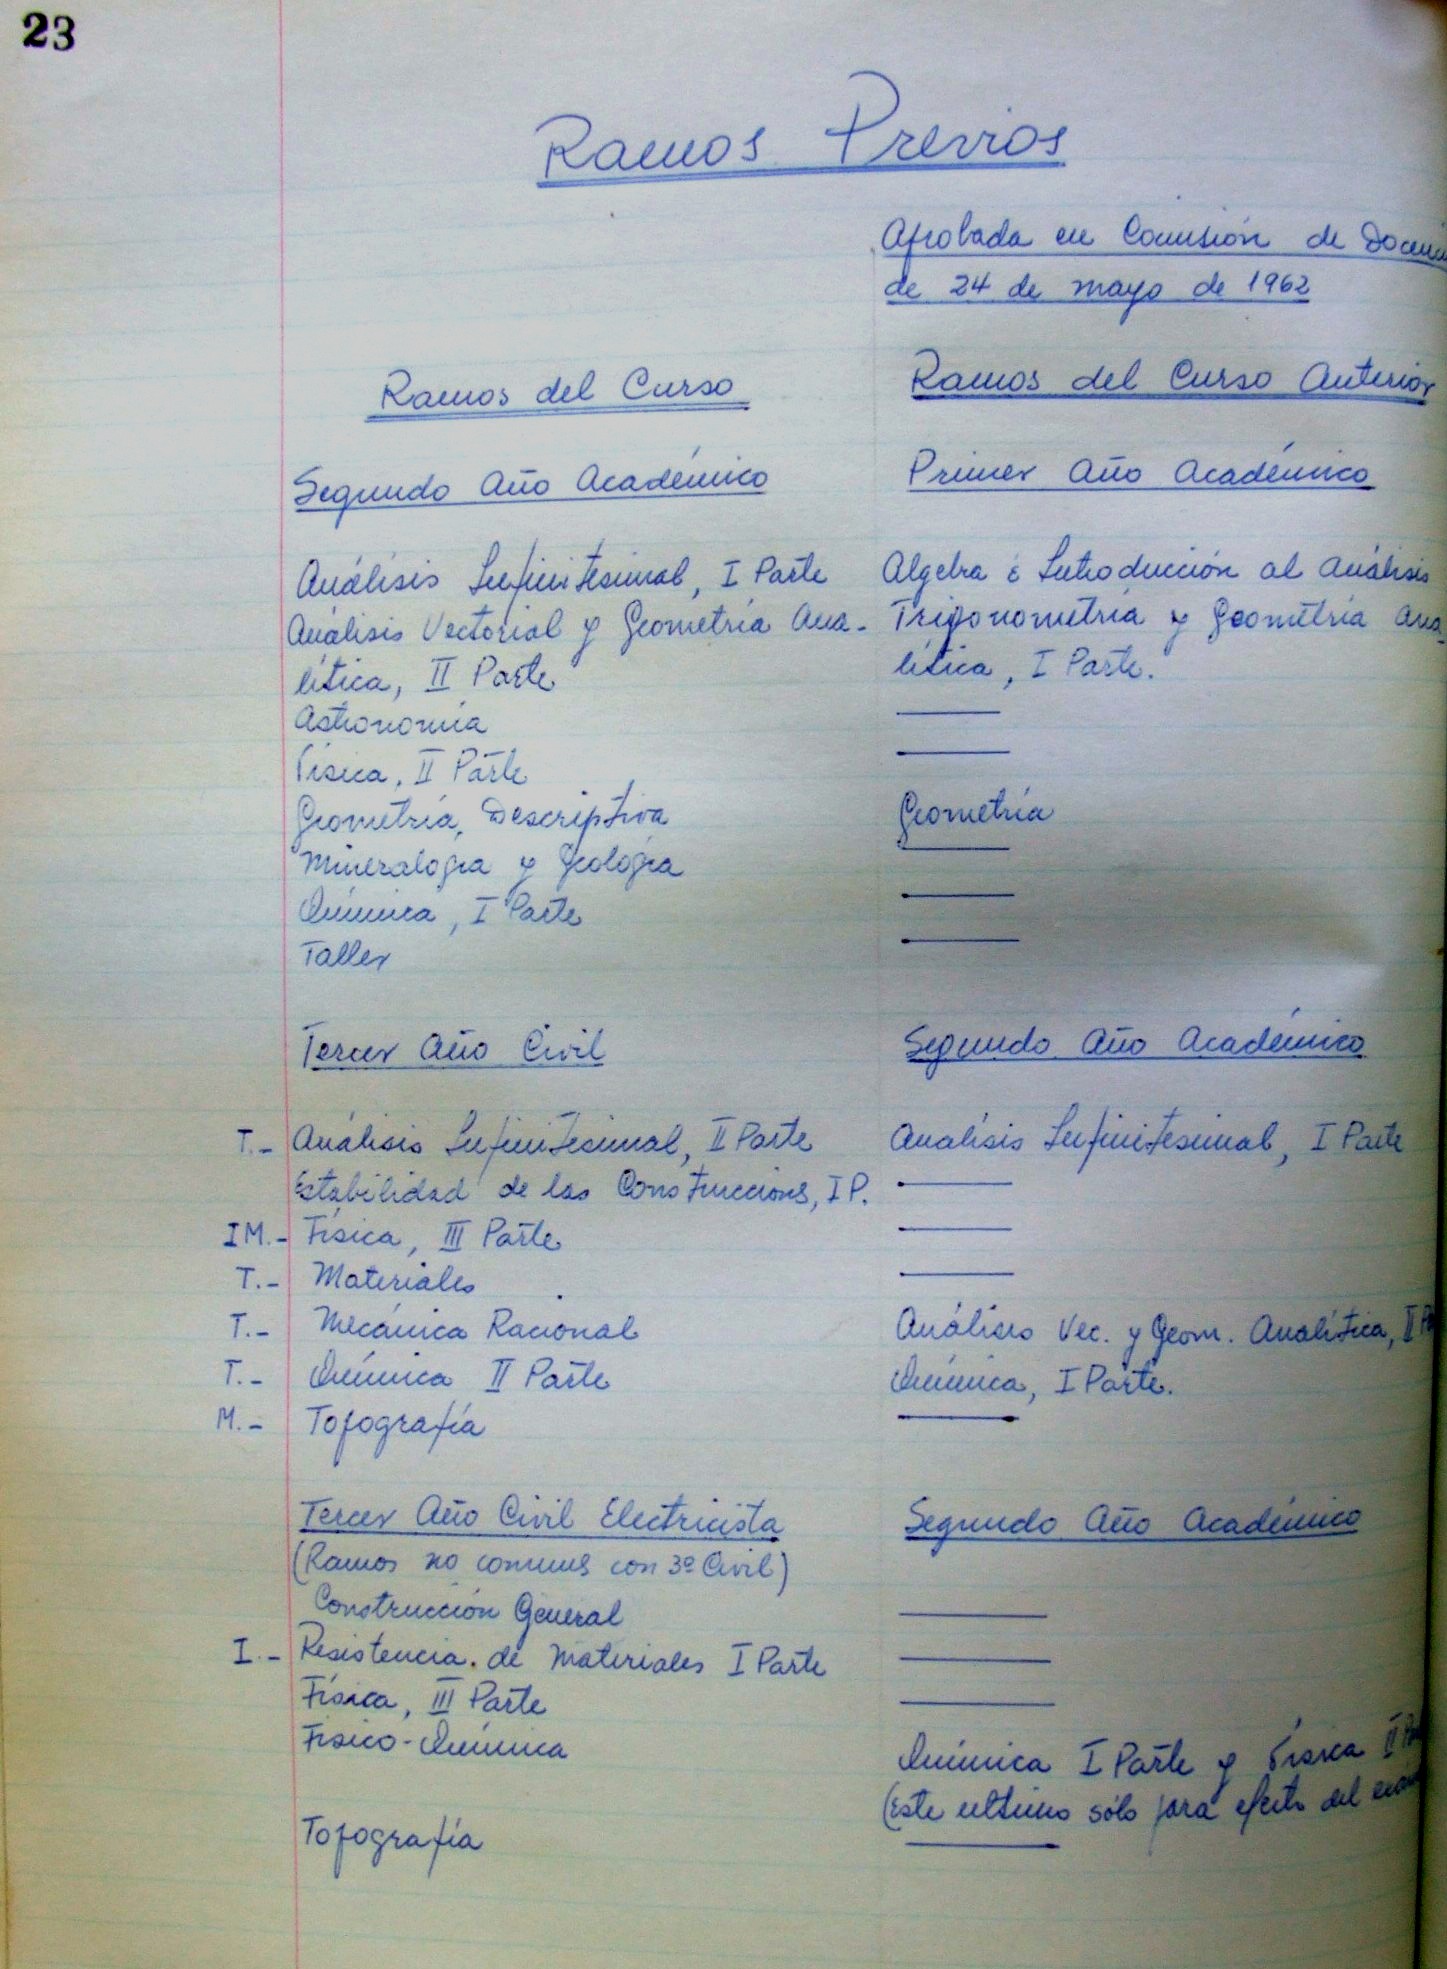 23
Ramos Previos
Aprobada en Comisión de
de 24 de mayo de 1962
Ramos del Curso Ramos del Curso Anterior
Segundo Año Académico Primer Año Académico
Análisis Infinitesimal, I Parte Algebra é Introducción al Análisis
Análisis Vectorial y Geometría Ana- Trigonometría y Geometría Ana-
lítica, II Parte lítica, I Parte.
Astronomía
Física, II Parte
Geometría Descriptiva Geometría
Mineralogía y Geología
Química, I Parte
Taller
Tercer Año Civil Segundo Año Académico
T.- Análisis Infinitesimal, II Parte Analísis Infinitesimal, I Parte
Estabilidad de las Construccions, I P.
IM.- Física, III Parte
T.- Materiales
T.- Mecánica Racional Análisis Vec. y Geom. Analítica, II
T.- Química II Parte Química, I Parte.
M.- Topografía
Tercer Año Civil Electricista Segundo Año Académico
(Ramos no comunes con 3º Civil)
Construcción General
I.- Resistencia de Materiales I Parte
Física, III Parte
Fisico-Química Química I Parte y Física II
(Este ultimo sólo para efecto del
Topografía